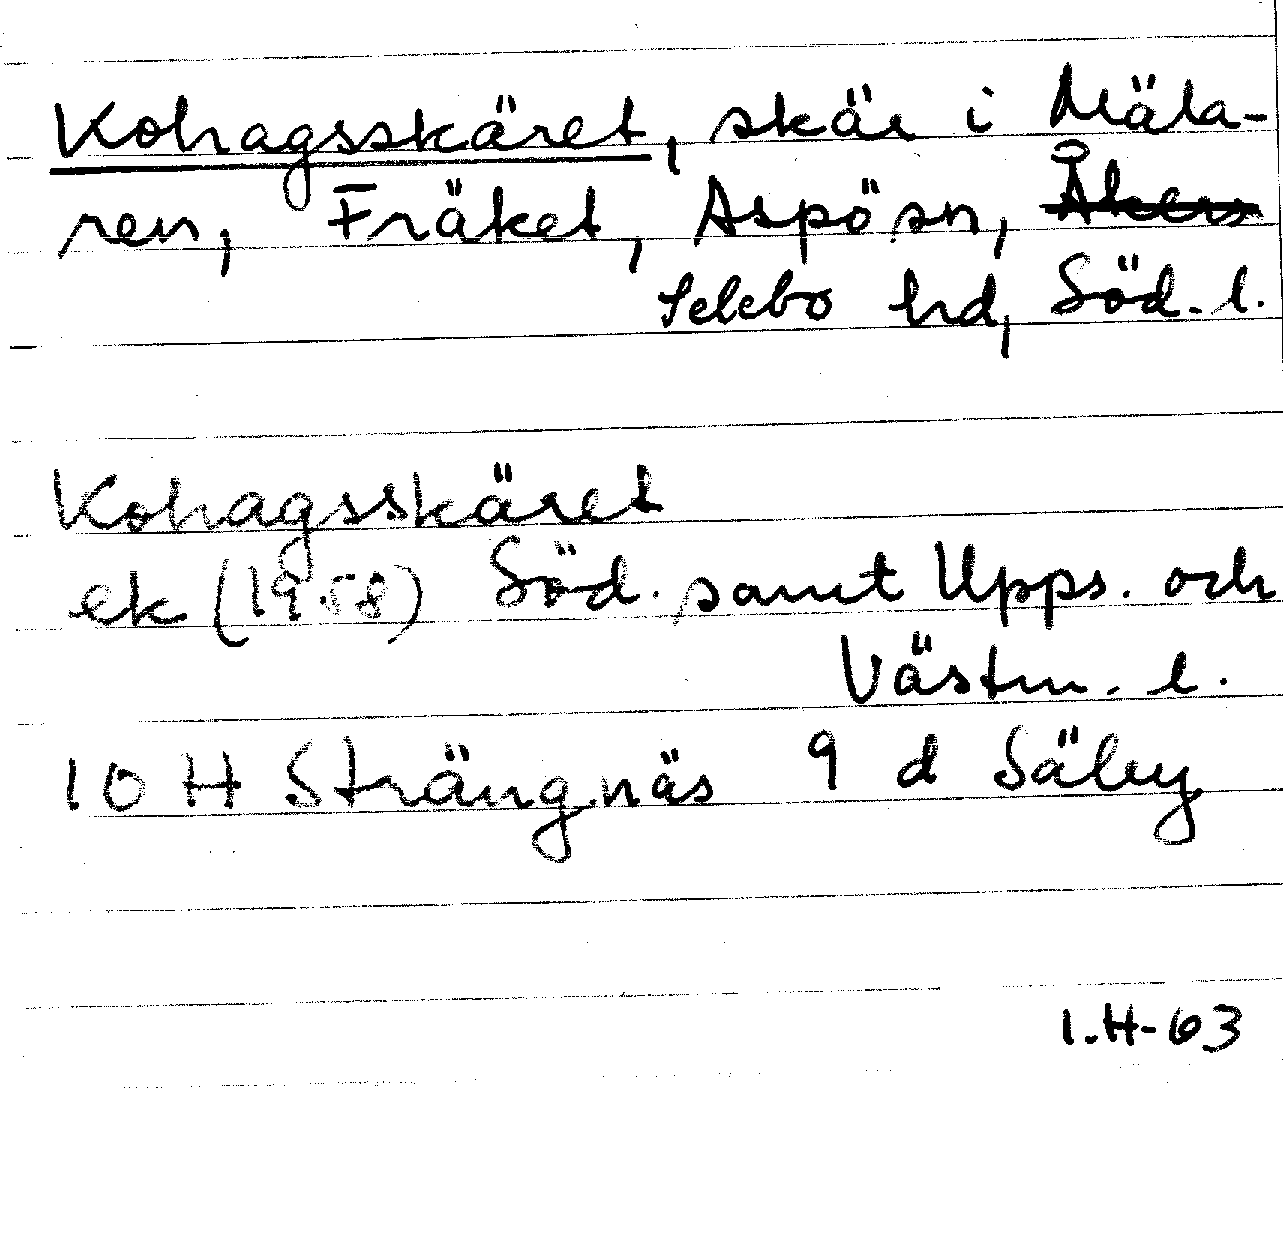 Kohagsskäret, skär i Mäla-
ren, Fräket, Aspösn, Åkers
Selebo hd, Söd. l.
Kohagsskäret
ek (1958) Söd. samt Upps. och
Västm. l.
10 H Strängnäs 9 d Säby
I.H-63